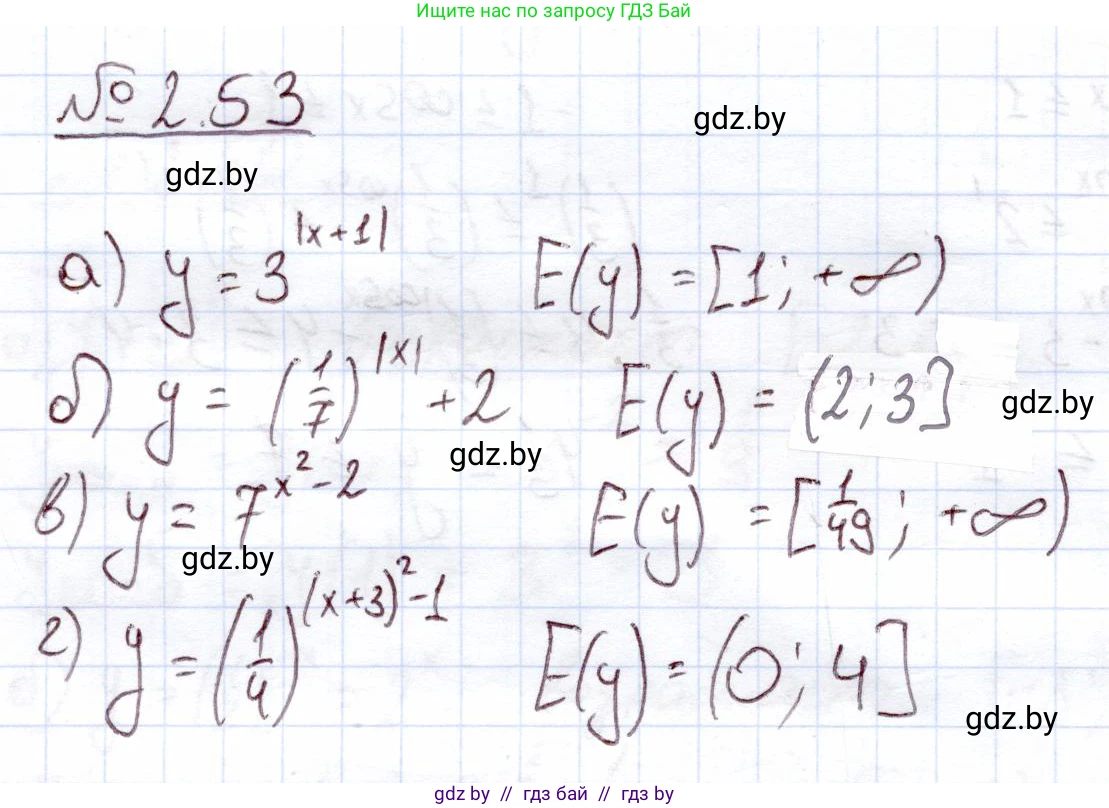 Ищите нас по запросу ГДЗ Бай
№ 2.53
gdz.by
gdz.by
а) y = 3^|x+1| E(y) = [1; +∞)
б) y = (1/7)^|x| + 2 E(y) = (2; 3]
gdz.by
gdz.by
в) y = 7^x²-2 E(y) = [1/49; +∞)
gdz.by
г) y = (1/4)^(x+3)²-1 E(y) = (0; 4]
gdz.by
gdz by // гдз бай // гдз by